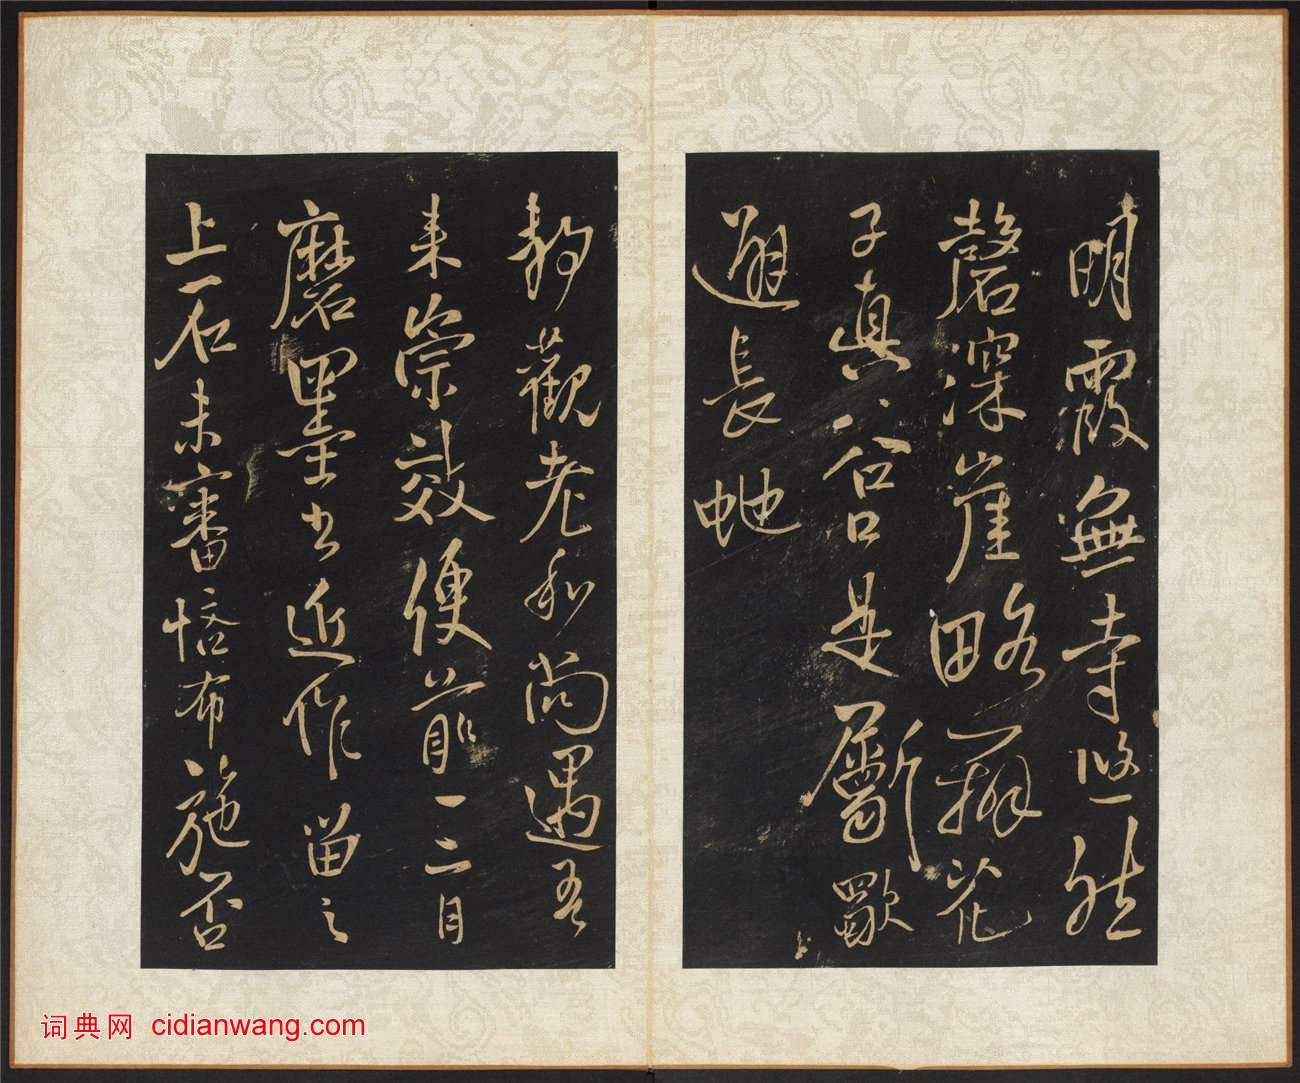 明霞無寺悠然
磬深崖略辨花
子真谷口是斸歇
避長虵
静觀老和尚遇吾
来崇效便前一二月
磨墨出近作留之
上石未審恪布施否
词典网 cidianwang.com